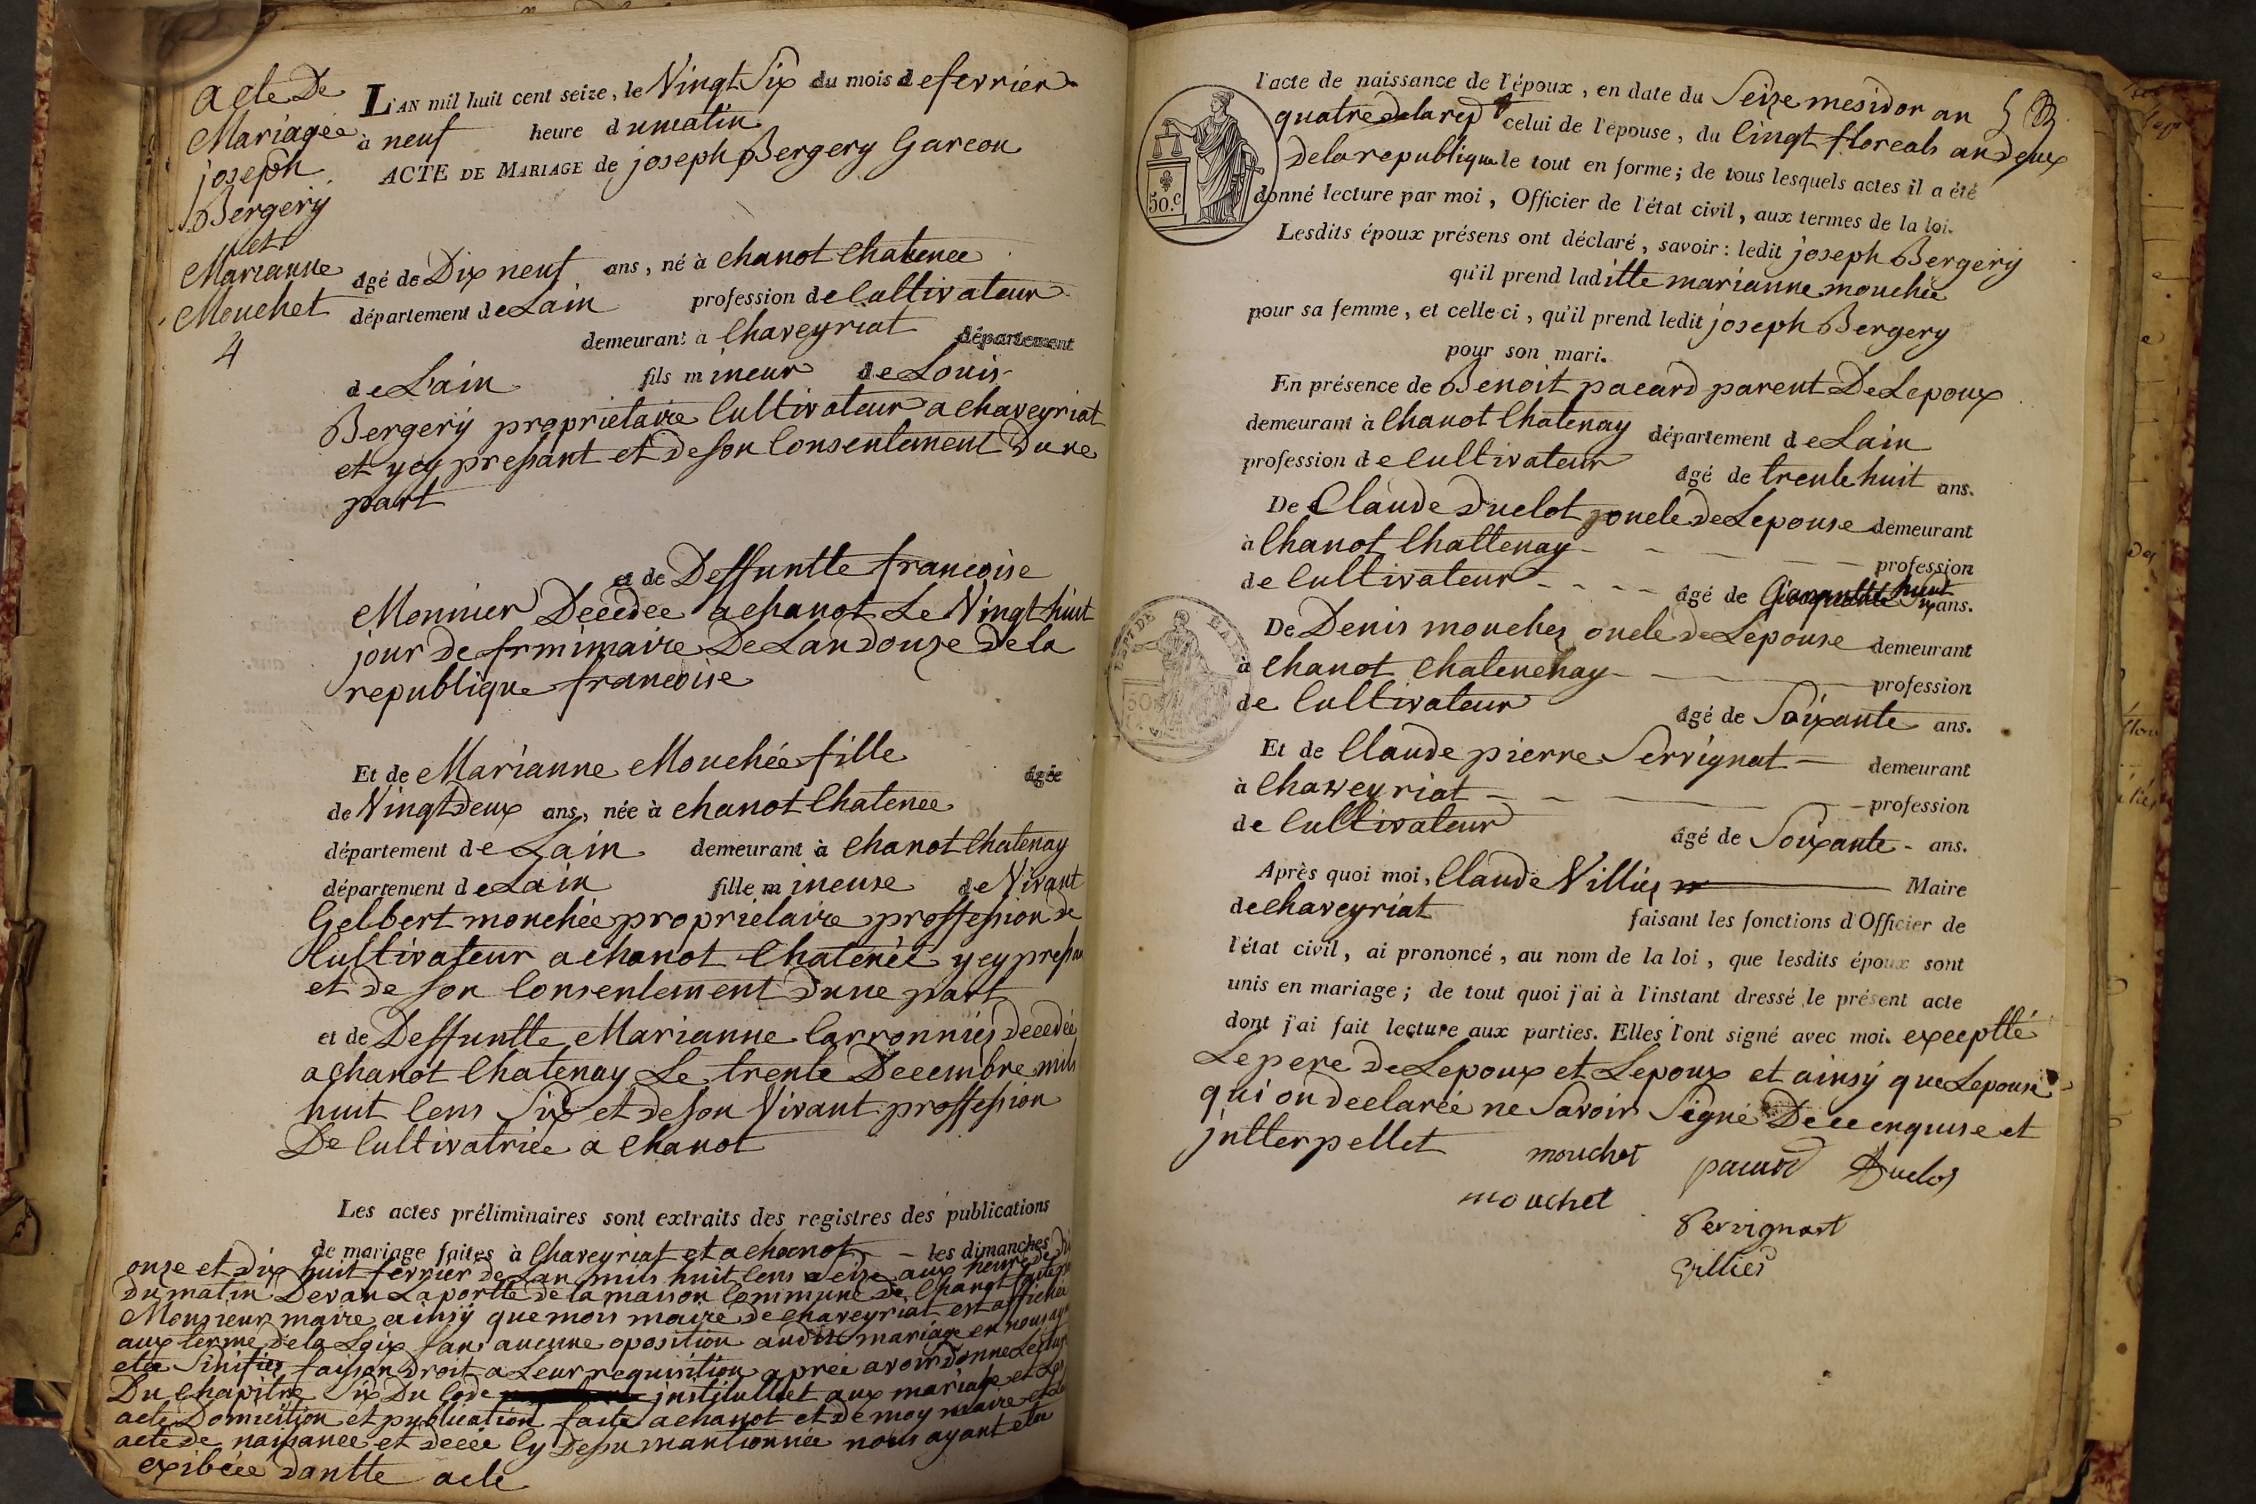 acte De
Mariagée
joseph
Bergery
et
Marianne
Mouchet
4
L'AN mil huit cent seize, le Vingt Six du mois de fevrier
à neuf heure du matin
ACTE DE MARIAGE de joseph Bergery Garcon
âgé de Dix neuf ans, né à chanot Chatenee
département de Lain profession de Cultivateur
demeurant a Chaveyriat département
de L'ain fils mineur de Louis
Bergery proprietaire Cultivateur a Chaveyriat
et y cy pressant et De son Consentement Dune
part
et de Deffuntte francoise
Monnier Decedee a chanot Le Vingt huit
jour de frmimaire De Lan Douze De la
republique francoise
Et de Marianne Mouchée fille âgée
de Vingt deux ans, née à chanot Chatenee
département de Lain demeurant à Chanot Chatenay
département de Lain fille mineuse de Vivant
Gelbert mouchée proprietaire proffession de
Cultivateur a chanot Chatenée y cy pressan
et De son Consentement Dune part
et de Deffuntte Marianne Carronnier Decedée
a Chanot Chatenay Le trente Decembre mils
huit Cens Six et de son Vivant proffession
De Cultivatrice a Chanot
Les actes préliminaires sont extraits des registres des publications
de mariage faites à Chaveyriat et a chanot les dimanches
onze et dix huit fevrier de Lan mils huit Cens Seize aux heure de Di
du matin Devan La portte de la maison Commune De Chanot faite
Monsieur maire ainsy que mois maire de Chaveyriat est affichée
aux terme De la Loix san aucune oposition audit mariage en nous ay
etee Sinifier faison Droit a Leur requisition apree avoir Donne Lectur
Du Chapitre Six Du Code jnstitullet aux mariage et Les
acte Domicition et publication faite a chanot et De moy maire et
acte de naissance et decée Cy Dessu mantionnée nous ayant etee
exibeée Dontte acte
l'acte de naissance de l'époux, en date du Seize mesidor an
quatre de la rep celui de l'épouse, du Vingt floreals an deux
De la republique le tout en forme; de tous lesquels actes il a été
donné lecture par moi, Officier de l'état civil, aux termes de la loi.
50.c
Lesdits époux présens ont déclaré, savoir: ledit joseph Bergery
qu'il prend laditte marianne mouchée
pour sa femme, et celle-ci, qu'il prend ledit joseph Bergery
pour son mari.
En présence de Benoit pacard parent De Lepoux
demeurant à Chanot Chatenay département de Lain
profession de Cultivateur âgé de trente huit ans.
De Claude Duclot oncle De Lepouse demeurant
à Chanot Chattenay profession
de Cultivateur âgé de huit ans.
De Denis mouchez oncle de Lepouse demeurant
à Chanot Chatenenay profession
de Cultivateur âgé de Soixante ans.
Et de Claude pierre Servignat demeurant
à Chaveyriat profession
de Cultivateur âgé de Soixante ans.
Après quoi moi, Claude Villier Maire
de Chaveyriat faisant les fonctions d'Officier de
l'état civil, ai prononcé, au nom de la loi, que lesdits époux sont
unis en mariage; de tout quoi j'ai à l'instant dressé le présent acte
dont j'ai fait lecture aux parties. Elles l'ont signé avec moi. exceptté
Le pere de Lepoux et Lepoux et ainsy que Lepouse
qui on declarée ne Savoir Signé De ce enquise et
jntterpellet
mouchet pacard Duclos
mouchet
Servignat
Villier